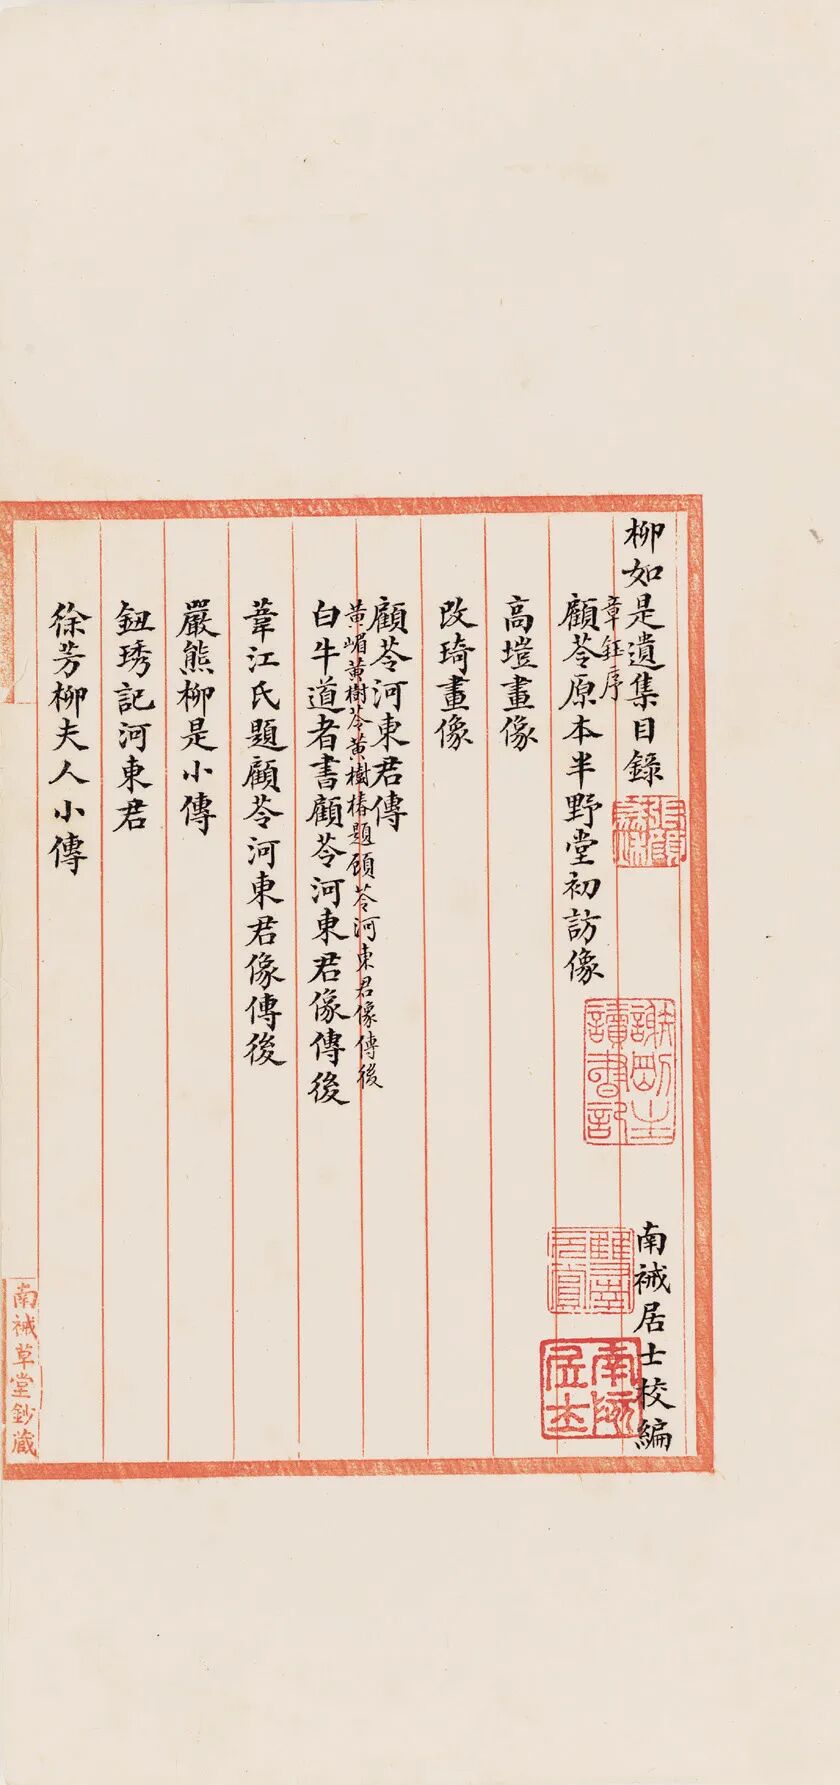 柳如是遺集目錄
南祴居士校編
章鈺序
顧苓原本半野堂初訪像
高塏畫像
改琦畫像
顧苓河東君傳
黃嵋黃樹苓黃樹椿題顧苓河東君像傳後
白牛道者書顧苓河東君像傳後
葦江氏題顧苓河東君像傳後
嚴熊柳是小傳
鈕琇記河東君
徐芳柳夫人小傳
南祴草堂鈔藏
謝剛主讀書記
南祴居士